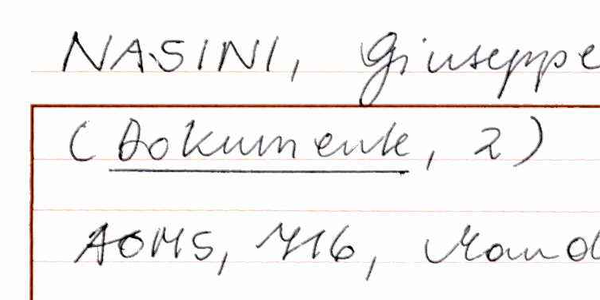 NASINI, Giuseppe
(Dokumente, 2)
AOMS, 716, Mand